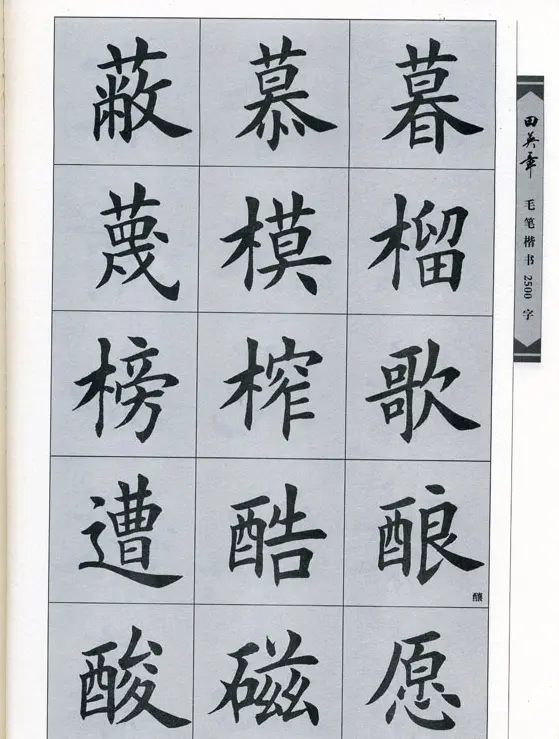 蔽慕暮
蔑模榴
榜榨歌
遭酷酿
釀
酸磁愿
田英章
毛笔楷书2500字